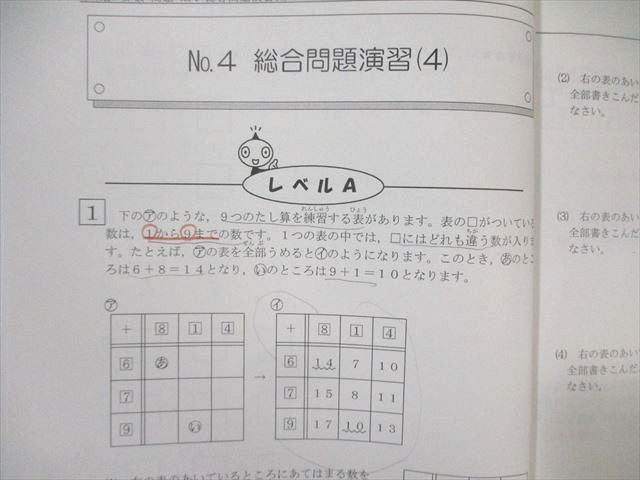 No.4 総合問題演習(4)
レベルA
1 下の㋐のような，9つのたし算を練習する表があります。表の□がついてい
数は，①から⑨までの数です。1つの表の中では，□にはどれも違う数が入りま
す。たとえば，㋐の表を全部うめると㋑のようになります。このとき，あのとこ
ろは6＋8＝14となり，いのところは9＋1＝10となります。
㋐
＋ 8 1 4
6 あ
7
9 い
→
㋑
＋ 8 1 4
6 14 7 10
7 15 8 11
9 17 10 13
右の表のあいているところにあてはまる数を
(2) 右の表のあい
全部書きこんだ
なさい。
(3) 右の表のあい
全部書きこんだ
なさい。
(4) 右の表のあい
全部書きこんだ
なさい。